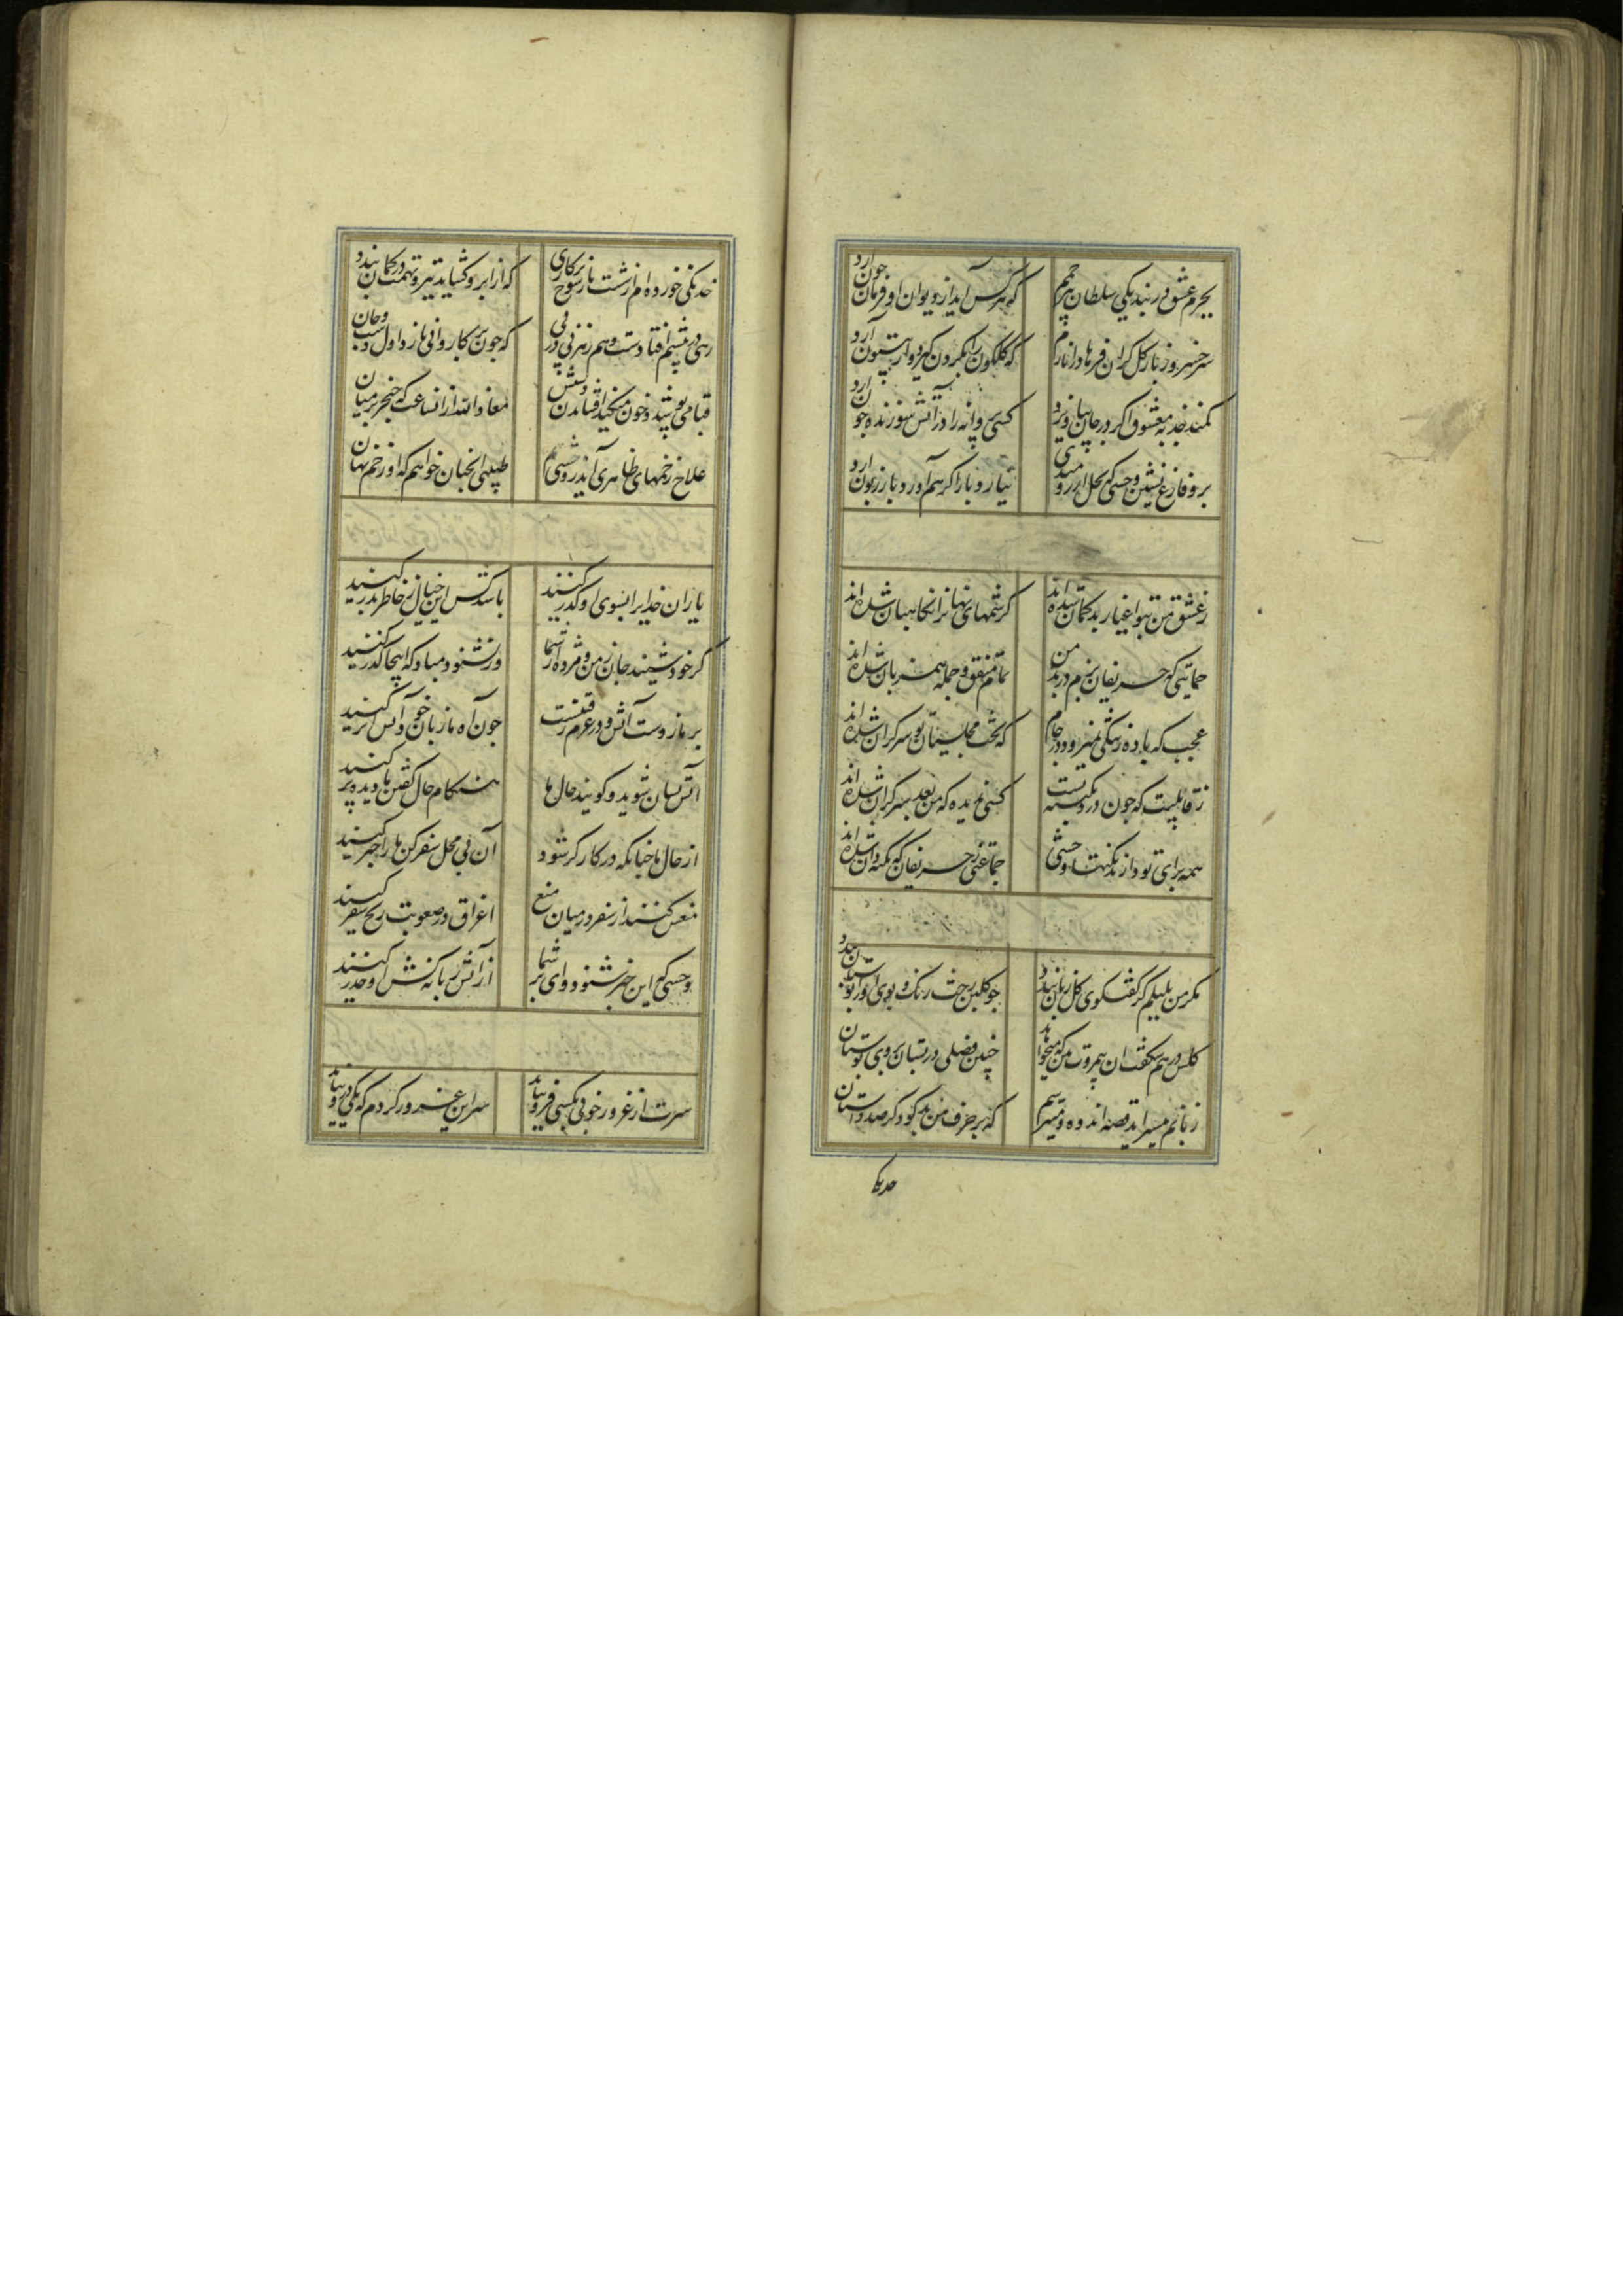 بجرم عشق در بند یکی سلطان بی‌رحمم
که هر کس آید از دیوان او فرمان خون آرد
سر خسرو ز ناز کل کران فرهاد را نازم
که کلکون را بکردن کیرد و از بیستون آرد
کمند جذبه معشوق اکر در جان نیاویزد
کسی پروانه را در آتش سوزنده چون آرد
برو فارغ نشین وحشی که نخل آرزومندی
نیارد بار اکر هم آورد بار زبون آرد
ز عشق من بتو اغیار بدکمان شده اند
کرشمهای نهان را نکاهبان شده اند
حمایتی که حریفان بزم در بد من
تمام متفق و جمله همزبان شده اند
عجب که باده ز رشکی نمیرود در جام
که تحت مجلسیان تو سرکران شده اند
کسی ندیده که من بعد سرکران شده اند
همه برای تو دارند نکتها وحشی
جماعتی ز حریفان که نکته دان شده اند
مکر من بلبلم کز کفتکوی کل زبان بندد
چو کلبن رخت رنک و بوی او در بوستان بندد
کلش در هم شکفت آن بیمروت بین که میخواهد
چنین فصلی در بستان بروی بوستان
زبانم میسراید قصه اندوه و میترسم
که بر حرف من بدکو دکر صد داستان
خدنکی
خدنکی خورده ام از شست ناز شوخ پرکاری
که از ابرو کشاید تیر و تهمت در کمان بندد
رهی در پیشم افتادست و هم رهزنی در پی
که چون بر کاروانی ها زد اول دست و جان
قبا می پوشد و خون میچکد افشاندن دستش
معاذ الله از آن ساعت که خنجر بر میان
علاج زخمهای ظاهری آید ز وحشی هم
طبیبی آنچنان خواهم که او زخم نهان
یاران خدایرا بسوی او کذر کنید
باشد کش این خیال ز خاطر بدر کنید
کر خود شنیند جان ز من و مژده از شما
ور نشنود مباد که اینجا کذر کنید
بر ما ز دوست آتش و در عزم رفتنست
چون آه ما زبان خود آتش اثر کنید
آتش زبان شوید و کویید حال ما
هنکام حال کفتن ما دیده تر کنید
از حال ما چنانکه درو کارکر شود
آن بی محل سفر کن ما را خبر کنید
منعش کنید از سفر و در میان منع
اغراق در صعوبت رنج سفر کنید
وحشی کر این خبر شنود وای بر شما
از آتش زبانه کش او حذر کنید
سرت از غرور خوبی بکسی فرو نیاید
سر این غرور کردم که یکی درو نیاید